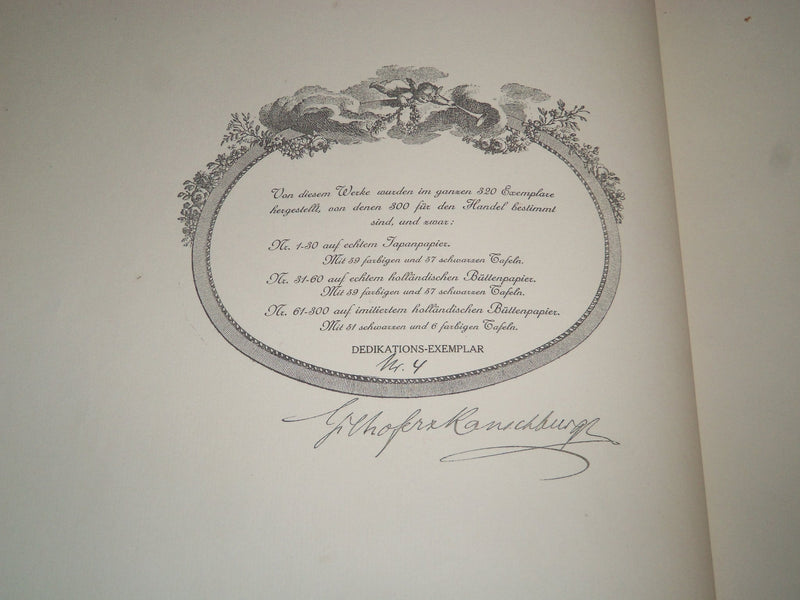 Von diesem Werke wurden im ganzen 320 Exemplare
hergestellt, von denen 300 für den Handel bestimmt
sind, und zwar:
Nr. 1-30 auf echtem Japanpapier.
Mit 39 farbigen und 57 schwarzen Tafeln.
Nr. 31-60 auf echtem holländischen Büttenpapier.
Mit 39 farbigen und 57 schwarzen Tafeln.
Nr. 61-300 auf imitiertem holländischen Büttenpapier.
Mit 51 schwarzen und 6 farbigen Tafeln.
DEDIKATIONS-EXEMPLAR
Nr. 4
Gilhofer & Ranschburg